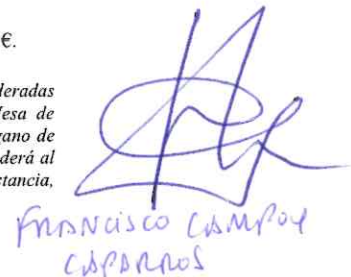 €.
deradas
Mesa de
gano de
derá al
stancia,
FRANCISCO CAMPOY
CAPARROS